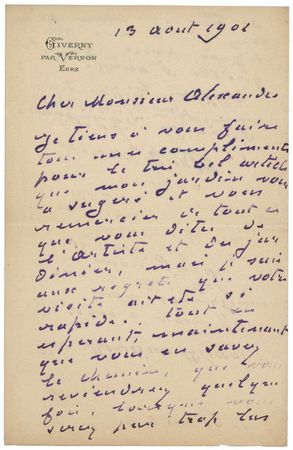 GIVERNY
PAR VERNON
EURE
13 aout 1901
Cher Monsieur Alexandre
Je tiens à vous faire
tous mes compliments
pour le très bel article
que mon jardin vous
a suggéré et vous
remercier de tout ce
que vous dites de
l'artiste et du jar
dinier, mais je suis
aux regrets que votre
visite ait été si
rapide. tout en
esperant, maintenant
que vous en savez
le chemin, que vous
reviendrez quelque
fois, lorsque vous
serez par trop las